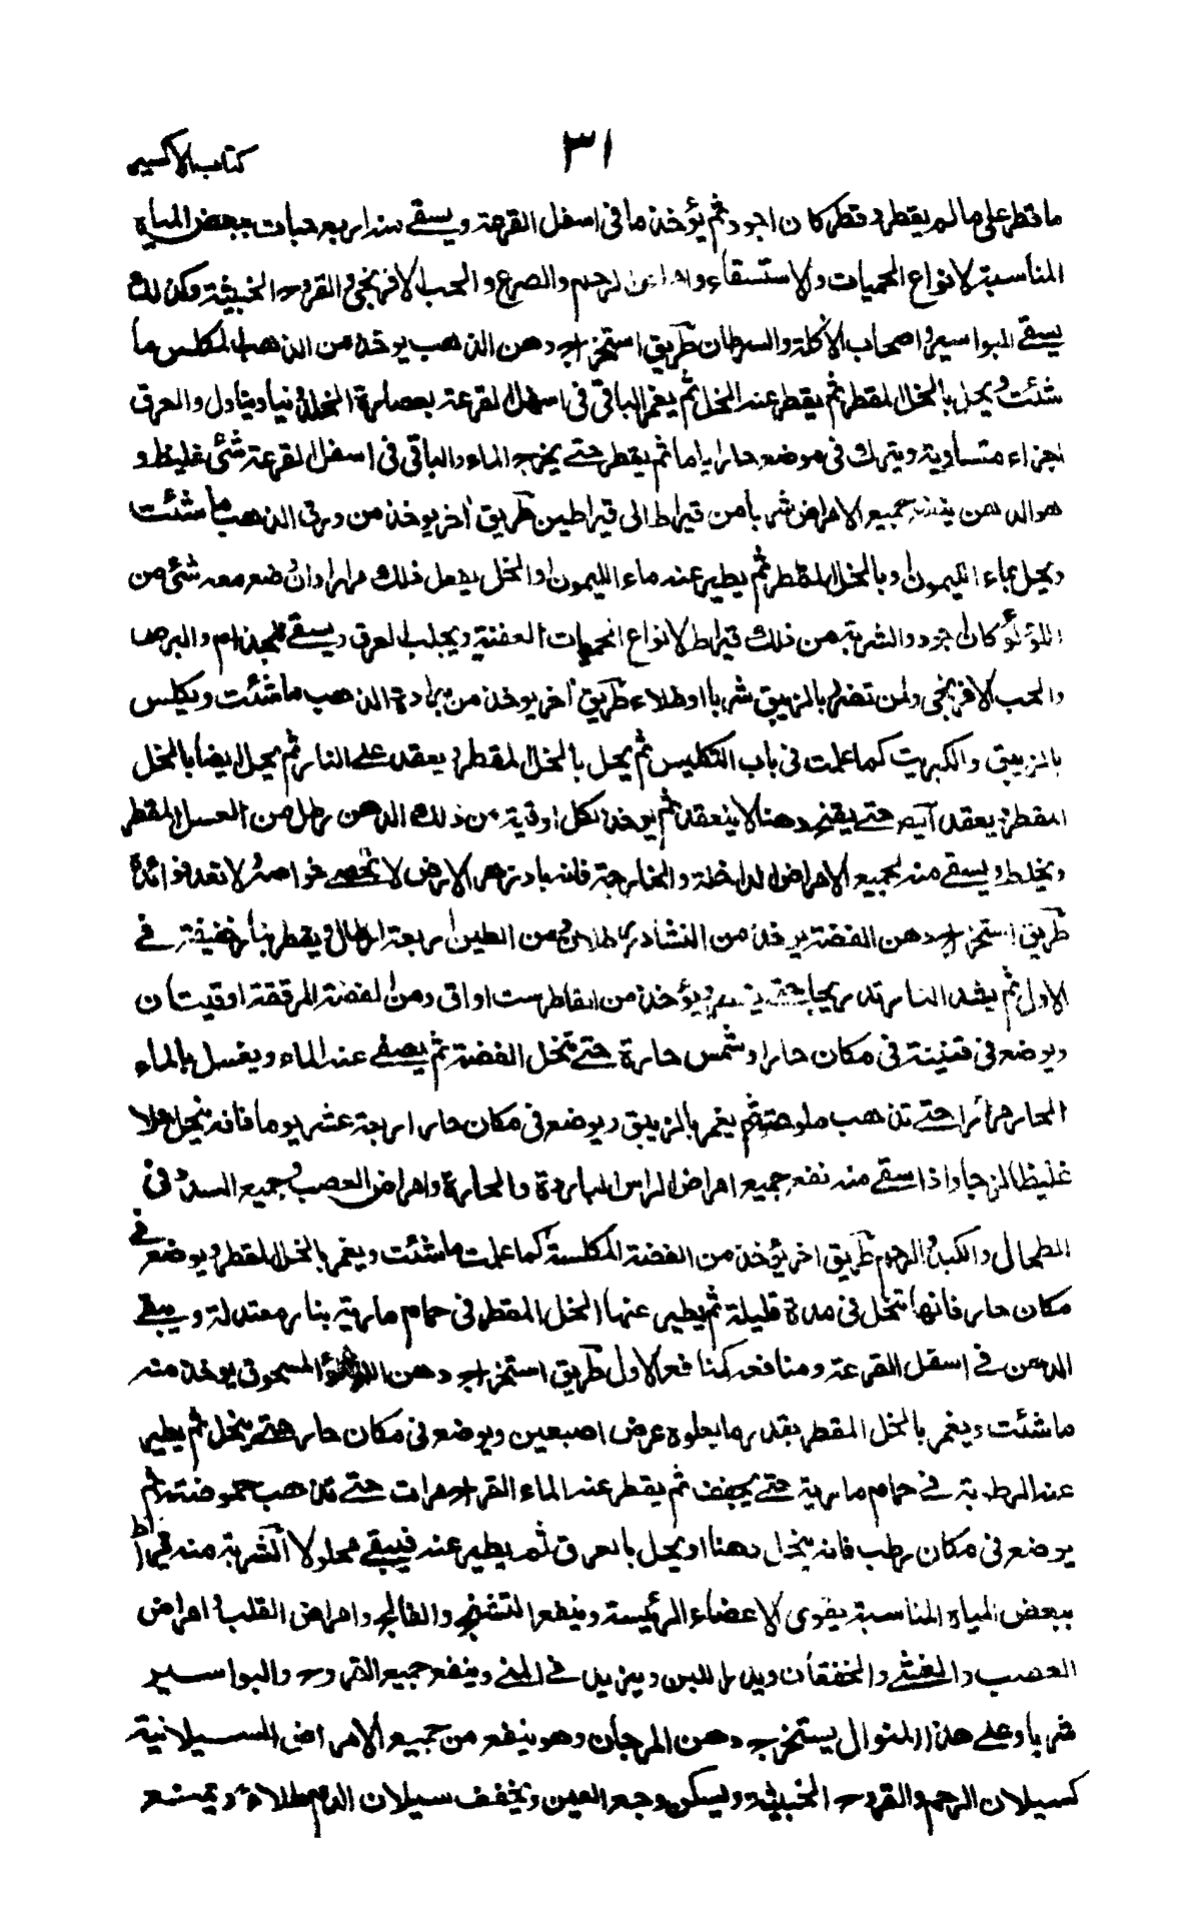 كتاب الاكسير
٣١
ما قطر على ما لم يقطر وقطر كان اجود ثم يؤخذ ما في اسفل القرعة ويسقى منه اربع حبات ببعض المياه
المناسبة لانواع الحميات والاستسقاء وامراض الرحم والصرع والحب الافرنجي والقروح الخبيثة وكذلك
يسقى البواسير واصحاب الأكلة والسرطان طريق استخراج دهن الذهب يوخذ من الذهب المكلس ما
شئت ويحل بالخل المقطر ثم يقطر عنه الخل ثم يغمر الباقي في اسفل القرعة بعصارة والعرق
اجزاء متساوية ويترك في موضع حار اياما ثم يقطر حتى يخرج الماء والباقي في اسفل القرعة شئ غليظ و
هو الدهن ينفع جميع الامراض شربا من قيراط الى قيراطين طريق اخر يوخذ من ورق الذهب ما شئت
ويحل بماء الليمون او بالخل المقطر ثم يطير عنه ماء الليمون او الخل يفعل ذلك مرارا وان ضع معه شئ من
اللؤلؤ كان اجود والشربة من ذلك قيراط لانواع الحميات العفنية ويجلب العرق ويسقى للجذام والبرص
والحب الافرنجي ولمن تضرر بالزيبق شربا او طلاء طريق اخر يوخذ من برادة الذهب ما شئت ويكلس
بالزيبق والكبريت كما علمت في باب التكليس ثم يحل بالخل المقطر ويعقد على النار ثم يحل ايضا بالخل
المقطر ويعقد حتى يقي دهنا لا ينعقد ثم يوخذ لكل اوقية من ذلك الدهن رطل من العسل المقطر
ويخلط ويسقى منه لجميع الامراض الداخلة والخارجة فانه بادزهر الارض لا تحصى خواصه ولا تعد فوائده
طريق استخراج دهن الفضة يوخذ من النشادر رطلان ومن الطين اربعة ارطال ويقطر بنار خفيفة في
الاول ثم يشد النار تدريجا حتى يؤخذ من القاطر ست اواق ومن الفضة المرققة اوقيتان
ويوضع في قنينة في مكان حار او شمس حارة حتى تنحل الفضة ثم يصفى عنه الماء ويغسل بالماء
الحار مرارا حتى تذهب ملوحته ثم يغمر بالزيبق ويوضع في مكان حار اربعة عشر يوما فانه ينحل محلا
غليظا لزجا واذا سقى منه نفع جميع امراض الراس الباردة والحارة وامراض العصب وجميع السدد في
الطحال والكبد والرحم طريق اخر يؤخذ من الفضة المكلسة كما علمت ما شئت ويغمر بالخل المقطر ويوضع في
مكان حار فانها تنحل في مدة قليلة ثم يطير عنها الخل المقطر في حمام مارية بنار معتدلة ويبقى
الدهن في اسفل القرعة ومنافعه كمنافع الاول طريق استخراج دهن اللؤلؤ المسحوق يوخذ منه
ما شئت ويغمر بالخل المقطر بقدر ما يعلوه عرض اصبعين ويوضع في مكان حار حتى ينحل ثم يطير
عنه الرطوبة في حمام مارية حتى يجفف ثم يقطر عنه الماء القراح مرات حتى تذهب حموضته ثم
يوضع في مكان رطب فانه ينحل دهنا او يحل بالعرق ثم يطير عنه فيبقى محلولا الشربة منه قيراط
ببعض المياه المناسبة يقوى الاعضاء الرئيسة وينفع التشنج والفالج وامراض القلب وامراض
العصب والغشى والخفقان ويدر اللبن ويزيد في المني وينفع جميع القروح والبواسير
شربا وعلى هذا المنوال يستخرج دهن المرجان وهو ينفع من جميع الامراض السيلانية
كسيلان الرحم والقروح الخبيثة ويسكن وجع العين ويخفف سيلان الدم طلاء ويمنع